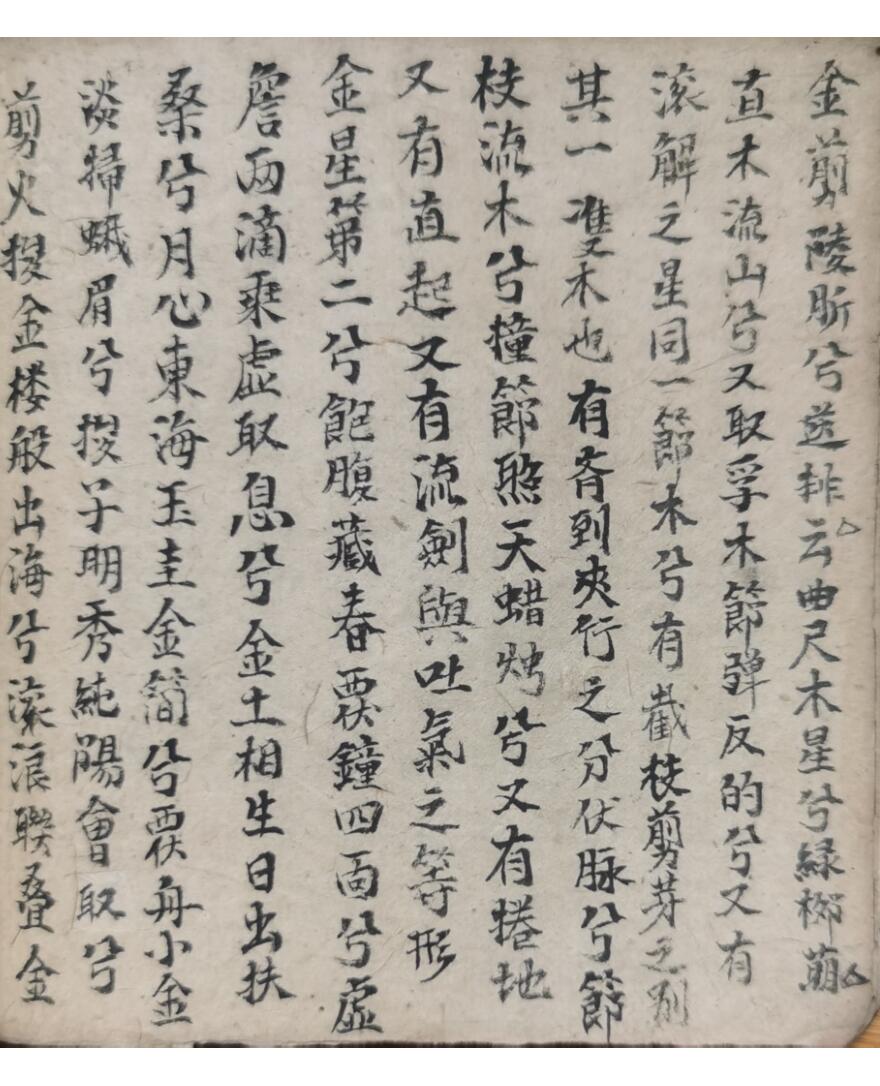 金剪陵斨兮送排云曲尺木星兮緑榔萠
直木流山兮又取孚木節弹反的兮又有
滚解之星同一節木兮有截枝剪芽之别
其一㕠木也有斉到夾行之分伏脉兮節
枝流木兮撞節照天蜡烛兮又有捲地
又有直起又有流劍與吐氣之等形
金星第二兮飽腹藏春覆鐘四面兮虚
詹两滴乘虚取息兮金土相生日出扶
桑兮月心東海玉圭金简兮覆舟小金
淡掃蛾眉兮授子明秀純陽會取兮
剪火授金楼般出海兮滚浪聨叠金